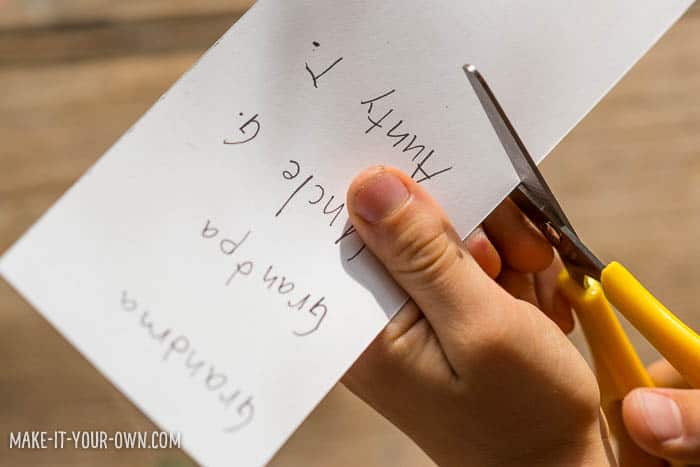 Grandma
Grandpa
Uncle G.
Aunty T.
MAKE-IT-YOUR-OWN.COM